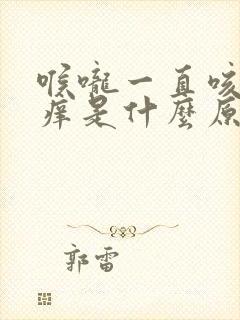 喉嚨一直咳
痒是什麼原
郭雷